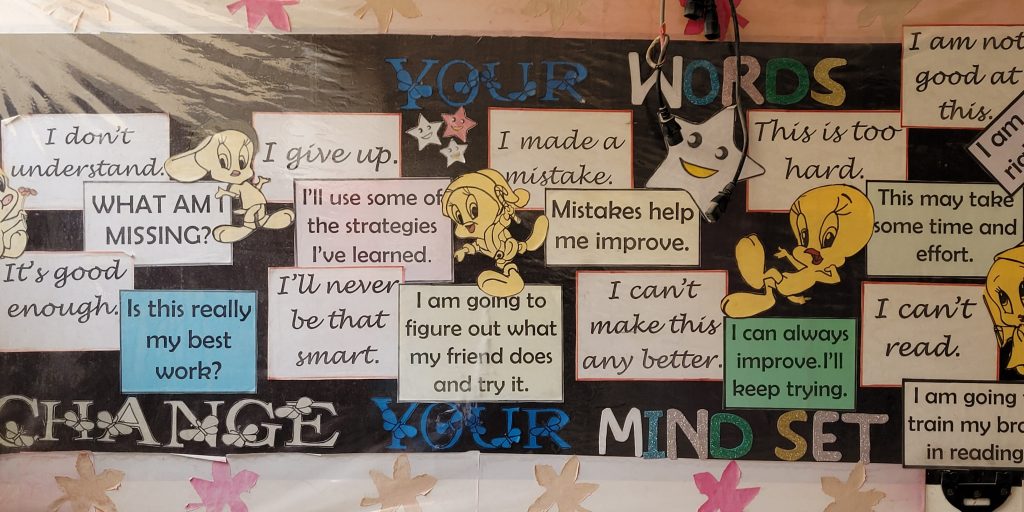 YOUR WORDS
I don't
understand.
WHAT AM I
MISSING?
I give up.
I'll use some of
the strategies
I've learned.
I made a
mistake.
Mistakes help
me improve.
This is too
hard.
This may take
some time and
effort.
I am not
good at
this.
I am
It's good
enough.
Is this really
my best
work?
I'll never
be that
smart.
I am going to
figure out what
my friend does
and try it.
I can't
make this
any better.
I can always
improve.I'll
keep trying.
I can't
read.
I am going
train my
in reading
CHANGE YOUR MIND SET